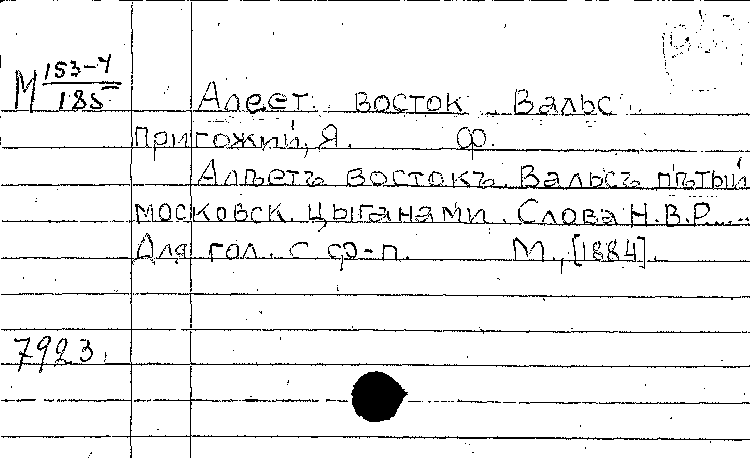 М 153-4/185
Алеет восток Вальс
Пригожий, Я. ф.
Алѣетъ востокъ. Вальсъ пѣтый
московск. цыганами. Слова Н.В.Р....
Для гол. с ф-п. М., [1884].
7923.